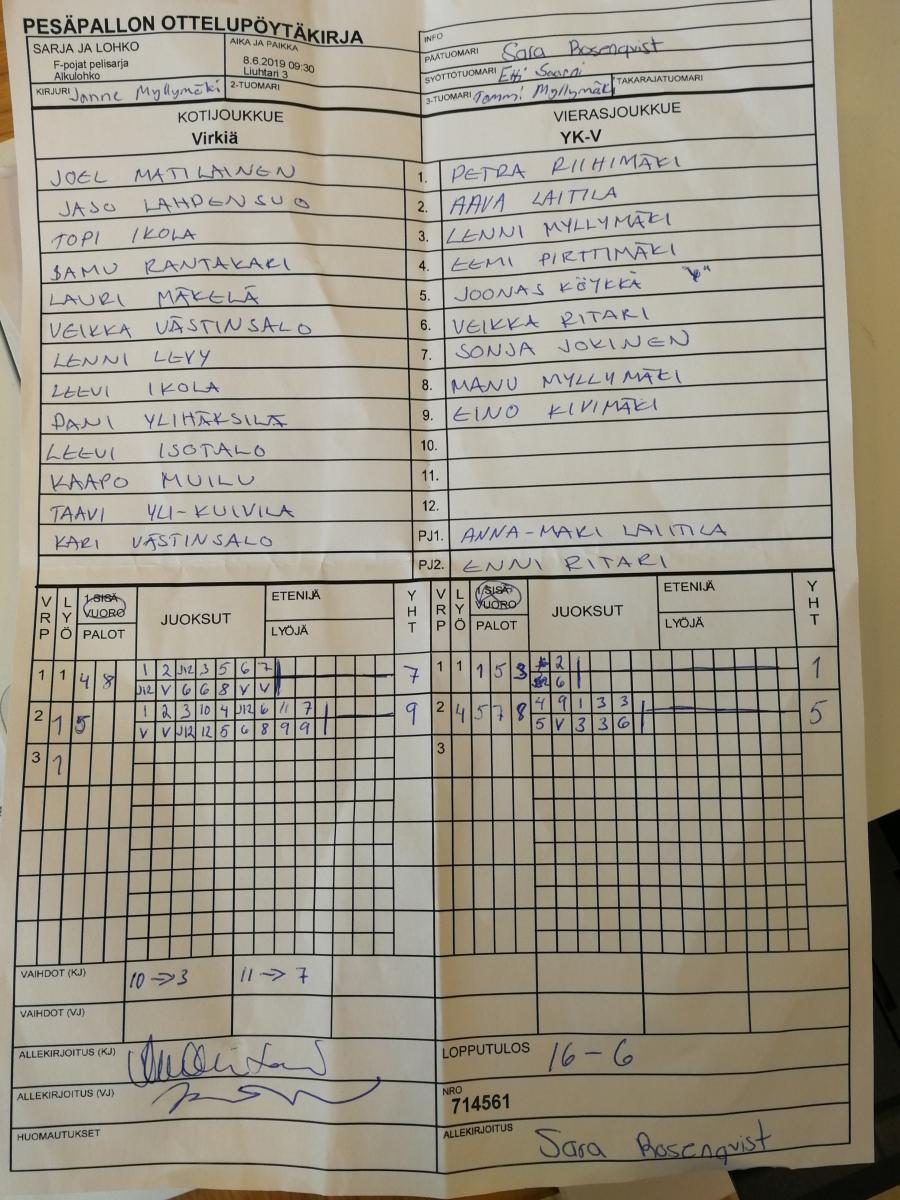 PESÄPALLON OTTELUPÖYTÄKIRJA
SARJA JA LOHKO
F-pojat pelisarja
Alkulohko
AIKA JA PAIKKA
8.6.2019 09:30
Liuhtari 3
KIRJURI Janne Myllymäki
2-TUOMARI
INFO
PÄÄTUOMARI Sara Rosenqvist
SYÖTTÖTUOMARI
3-TUOMARI Tommi Myllymäki
TAKARAJATUOMARI
KOTIJOUKKUE
Virkiä
VIERASJOUKKUE
YK-V
JOEL MATILAINEN 1. PETRA RIIHIMÄKI
JASO LAHDENSUO 2. AAVA LAITILA
TOPI IKOLA 3. LENNI MYLLYMÄKI
SAMU RANTAKARI 4. EEMI PIRTTIMÄKI
LAURI MÄKELÄ 5. JOONAS KÖYKKÄ
VEIKKA VÄSTINSALO 6. VEIKKA RITARI
LENNI LEVY 7. SONJA JOKINEN
LEEVI IKOLA 8. MANU MYLLYMÄKI
DANI YLIHÄRSILÄ 9. EINO KIVIMÄKI
LEEVI ISOTALO 10.
KAAPO MUILU 11.
TAAVI YLI-KUIVILA 12.
KARI VÄSTINSALO PJ1. ANNA-MARI LAITILA
PJ2. ENNI RITARI
VRP LYÖ 1.SISÄ VUORO PALOT JUOKSUT ETENIJÄ LYÖJÄ YHT
VRP LYÖ 1.SISÄ VUORO PALOT JUOKSUT ETENIJÄ LYÖJÄ YHT
1 1 4 8 1 2 J12 3 5 6 7 7
J12 V 6 6 8 V V
1 1 1 5 3 2 1
6
2 1 5 1 2 3 10 4 J12 6 11 7 9
V V J12 12 5 6 8 9 9
2 4 5 7 8 4 9 1 3 3 5
5 V 3 3 6
3 1
3
VAIHDOT (KJ) 10->3 11->7
VAIHDOT (VJ)
ALLEKIRJOITUS (KJ)
LOPPUTULOS 16-6
ALLEKIRJOITUS (VJ)
NRO
714561
HUOMAUTUKSET
ALLEKIRJOITUS Sara Rosenqvist